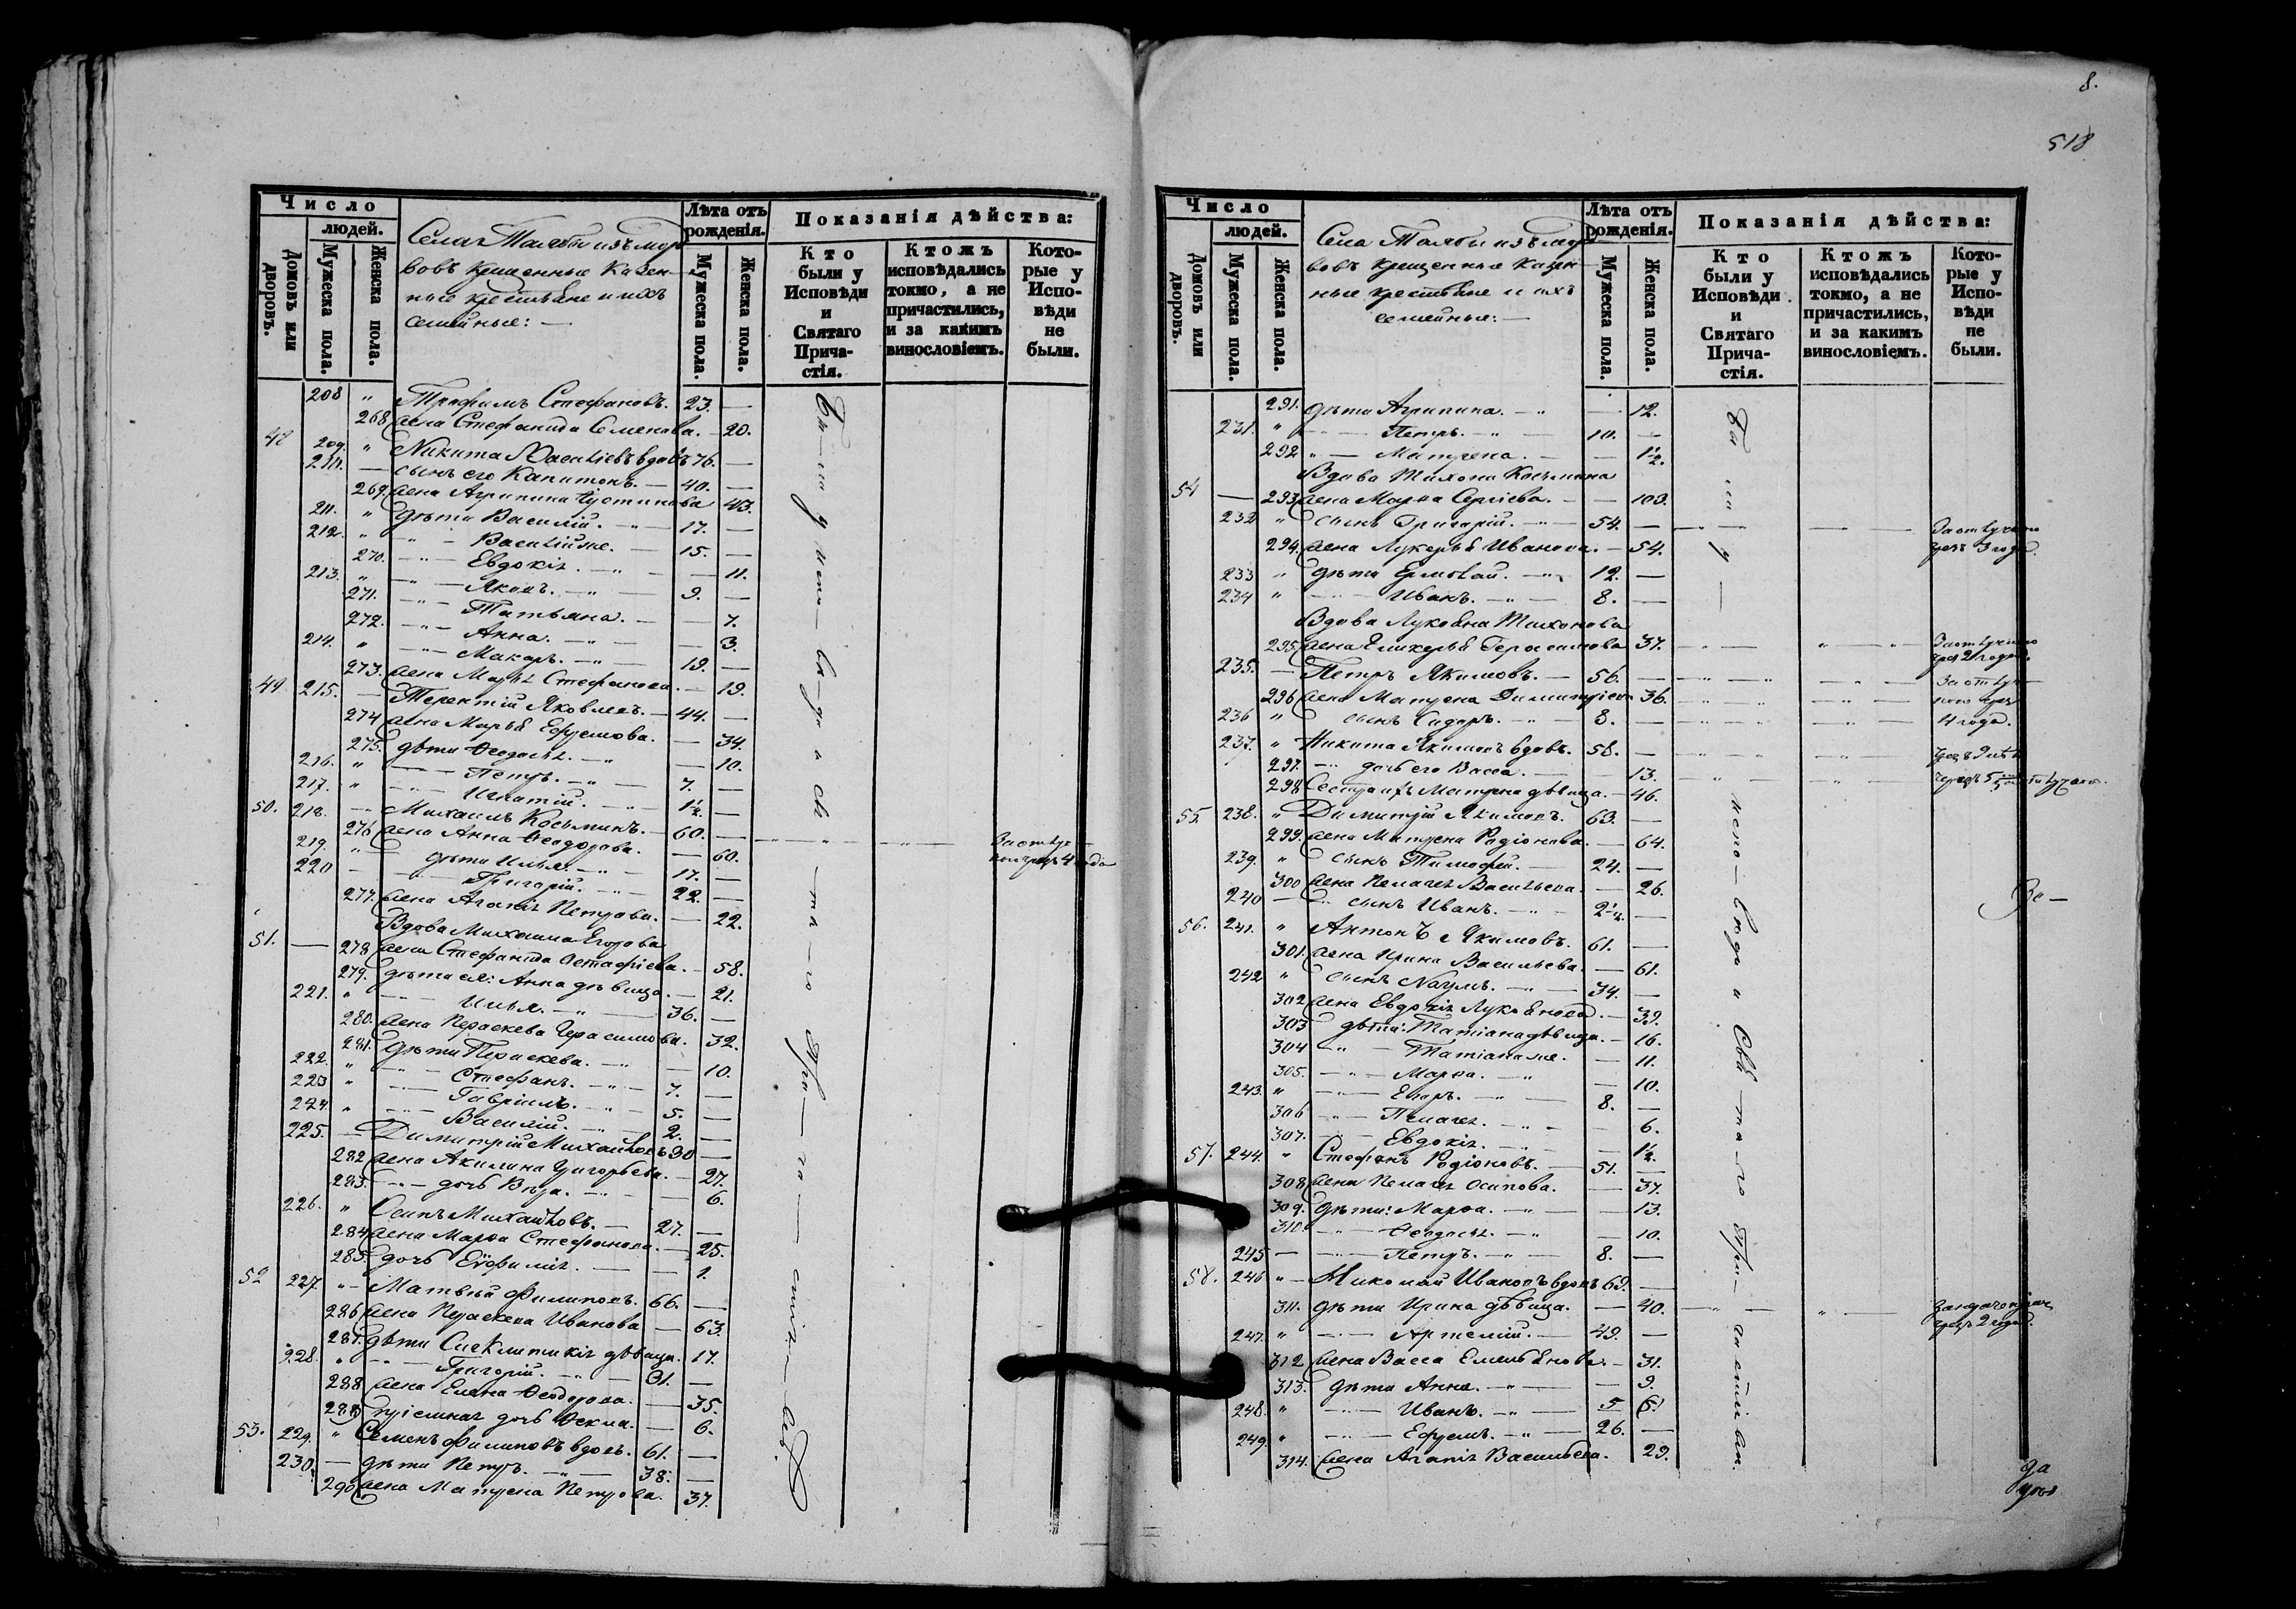 Число
людей.
Домовъ или дворовъ.
Мужеска пола.
Женска пола.
Села Талызи изъ морд-
вовъ крещенные казен-
ные крестьяне и ихъ
семейные: —
Лѣта отъ рожденія.
Мужеска пола.
Женска пола.
Показанія дѣйства:
Кто были у Исповѣди и Святаго Прича- стія.
Ктожъ исповѣдались токмо, а не причастились, и за какимъ винословіемъ.
Кото- рые у Испо- вѣди не были.
208 " Трофимъ Стефановъ. 23. —
268 жена Стефанида Семенова. — 20.
48 209. " Никита Васильевъ вдовъ 76. —
210. — сынъ его Капитонъ. — 40. —
269. жена Агрипина Иустинова 43.
211. " дѣти Василій. — " — 17. —
212. " — " — Василій же. — 15. —
270. — " — Евдокія. — " — — 11.
213. " — " — Яковъ. — " — 9. —
271. — " — Татьяна. — — 7.
272. — " — Анна. — " — — 3.
214. " — " — Макаръ. — " — 19. —
273. жена Марья Стефанова. — 19.
49 215. — Терентій Яковлевъ. — 44. —
274 жена Марья Ефремова. — 34.
275. дѣти Феодосья. — " — 10.
216. " — " — Петръ. — " — 7. —
217. " — " — Игнатій. — " — 1½. —
50. 218. — Михаилъ Косьминъ. — 60. —
276 жена Анна Феодорова. — 60.
219. " — дѣти Илья. — " — 17. —
220 — — Григорій. — " — 22. —
277. жена Агафія Петрова. — 22.
Вдова Михаила Егорова
51. — 278 жена Стефанида Остафіева. — 58.
279. дѣти ея: Анна дѣвица. — 21.
221. " — " — Илья. — " — 36. —
280. жена Параскева Герасимова. 32.
281. дѣти Параскева. — " — 10.
222. " — " — Стефанъ. — " — 7. —
223 " — " — Гавріилъ. — " — 5. —
224. " — " — Василій. — " — 2. —
225. — Димитрій Михайловъ 30 —
282 жена Акилина Григорьева. — 27.
283. — " — дочь Вѣра. — " — 6.
226. " Осипъ Михайловъ. — 27. —
284 жена Марфа Стефанова. — 25.
285. дочь Евфимія. — — 1.
52 227. " — Матвѣй Филиповъ. 66. —
286 жена Параскева Иванова — 63.
287. дѣти Сиклитикія дѣвица. 17.
228. " — " — Григорій. — " — 31. —
288 жена Елена Феодорова. — 35.
289 пріемная дочь Фекла. — 6.
53. 229. " Семенъ Филиповъ вдовъ. 61. —
230. — дѣти Петръ. — " — 38. —
290 жена Матрена Петрова. 37.
Бы-ли у испо-вѣ-ди и Свя-та-го При-ча-стія
8.
518
Число
людей.
Домовъ или дворовъ.
Мужеска пола.
Женска пола.
Села Талызи изъ морд-
вовъ крещенные казен-
ные крестьяне и ихъ
семейные: —
Лѣта отъ рожденія.
Мужеска пола.
Женска пола.
Показанія дѣйства:
Кто были у Исповѣди и Святаго Прича- стія.
Ктожъ исповѣдались токмо, а не причастились, и за какимъ винословіемъ.
Кото- рые у Испо- вѣди не были.
291. дѣти Агрипина. — " — 12.
231. " — " — Петръ. — " — 10. —
292 " — Матрена. — — 1½.
Вдова Тихона Косьмина
54 — 293 жена Марфа Сергіева. — — 103.
232 " сынъ Григорій. — " — 54. —
294. жена Лукерья Иванова. — 54.
233 " дѣти Ермолай. — " — 12. —
234 " — " — Иванъ. — " — 8. —
Вдова Лукьяна Тихонова
295. жена Гликерья Герасимова 37.
235. — Петръ Якимовъ. — 56. —
296 жена Матрена Димитріева 36.
236 " сынъ Сидоръ. — " — 8. —
237. " Никита Якимовъ вдовъ. 58. —
297. — " дочь его Васса. — — 13.
298 Сестра ихъ Матрена дѣвица. — 46.
55. 238. " Димитрій Якимовъ. 63. —
299. жена Матрена Родіонова. — 64.
239. " сынъ Тимофей. — 24. —
300 жена Пелагея Васильева. — 26.
240 — сынъ Иванъ. — " — 2½. —
56. 241. " Антонъ Якимовъ. 61. —
301. жена Ирина Васильева. — 61.
242 " сынъ Наумъ. — " — 34. —
302 жена Евдокія Лукьянова. — 39.
303 дѣти: Татіана дѣвица. — 16.
304 — " — Татіана же. — 11.
305. — " — Марфа. — " — 10.
243. " — " — Егоръ. — " — 8. —
306 — " — Пелагея. — " — 6.
307. — " — Евдокія. — " — 1½.
57. 244. " Стефанъ Родіоновъ. — 51. —
308 жена Пелагея Осипова. — 37.
309. дѣти: Марфа. — " — 13.
310. — " — Феодосья. — " — 10.
245 — — " — Петръ. — " — 8. —
58. 246 " — Николай Ивановъ вдовъ 69. —
311. дѣти Ирина дѣвица. — 40.
247. " — " — Артемій. — 49. —
312 жена Васса Емельянова. — 31.
313. дѣти Анна. — " — — 9.
248. " — " — Иванъ. — " — 5
249. " — " — Ефремъ. — " — 26. —
314. жена Агафія Васильева. 29.
Бы-ли у — испо-вѣди и Свя-та-го При-ча-стія